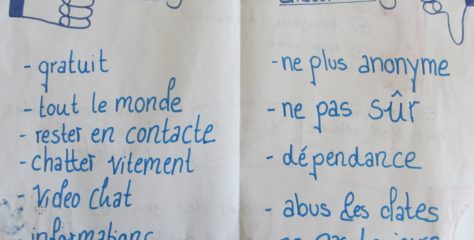 - gratuit
- tout le monde
- rester en contacte
- chatter vitement
- Video Chat
- informations
- ne plus anonyme
- ne pas sûr
- dépendance
- abus des dates